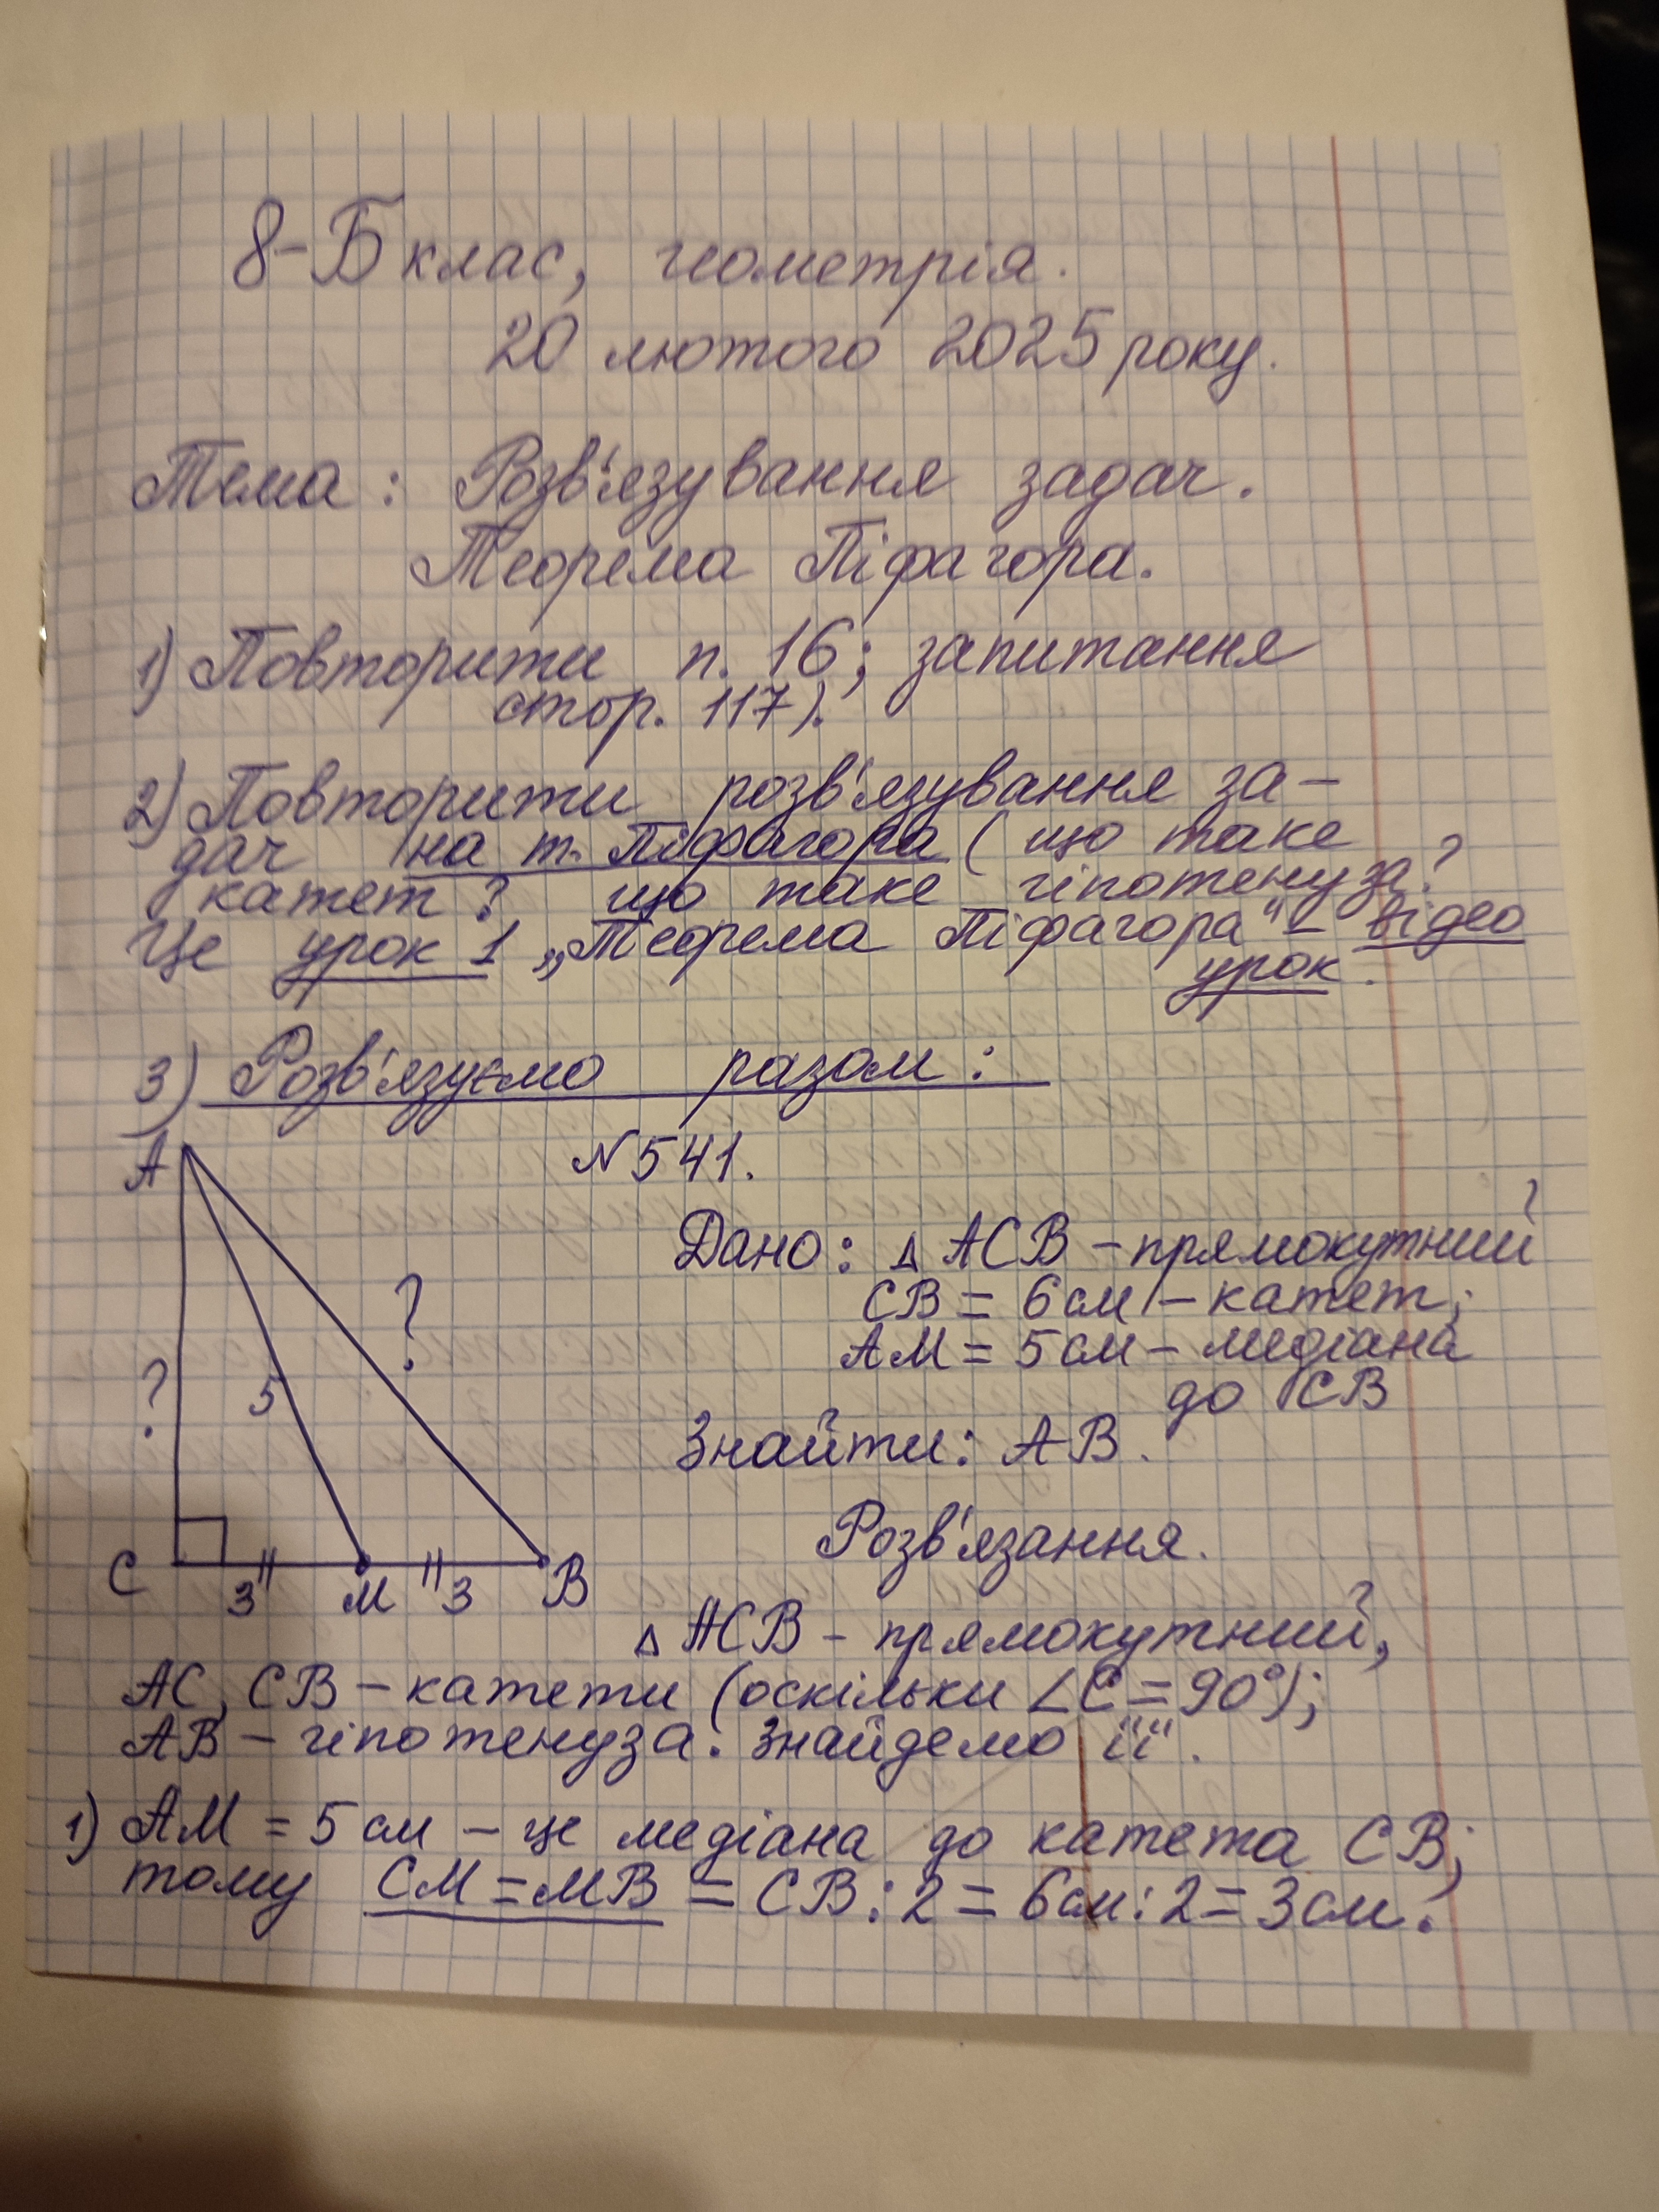 8-Б клас, геометрія.
20 лютого 2025 року.
Тема: Розв'язування задач.
Теорема Піфагора.
1) Повторити п. 16; запитання
стор. 117).
2) Повторити розв'язування за-
дач на т. Піфагора (що таке
катет? що таке гіпотенуза?
Це урок 1 „Теорема Піфагора" – відео
урок.
3) Розв'язуємо разом:
N541.
A
?
5
?
C
3
M
3
B
Дано: △ ACB – прямокутний
CB = 6 см – катет;
AM = 5 см – медіана
до CB
Знайти: AB.
Розв'язання.
△ ACB – прямокутний,
AC, CB – катети (оскільки ∠C = 90°);
AB – гіпотенуза. Знайдемо її.
1) AM = 5 см – це медіана до катета CB;
тому CM = MB = CB : 2 = 6 см : 2 = 3 см.